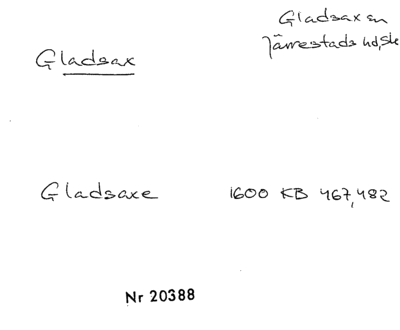 Gladsax sn
Järrestads hd, Sk
Gladsax
Gladsaxe 1600 KB 467, 482
Nr 20388